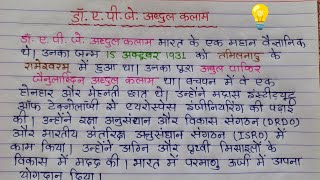 डॉ. ए. पी. जे. अब्दुल कलाम
डॉ. ए. पी. जे. अब्दुल कलाम भारत के एक महान वैज्ञानिक
थे। उनका जन्म 15 अक्टूबर 1931 को तमिलनाडु के
रामेश्वरम में हुआ था। उनका पूरा अबुल पाकिर
जैनुलाब्दिन अब्दुल कलाम था। बचपन में वे एक
होनहार और मेहनती छात्र थे। उन्होंने मद्रास इंस्टीट्यूट
ऑफ टेक्नोलॉजी से एयरोस्पेस इंजीनियरिंग की पढ़ाई
की। उन्होंने रक्षा अनुसंधान और विकास संगठन (DRDO)
और भारतीय अंतरिक्ष अनुसंधान संगठन (ISRO) में
काम किया। उन्होंने अग्नि और पृथ्वी मिसाइलों के
विकास में मदद की। भारत में परमाणु ऊर्जा में अपना
योगदान दिया।